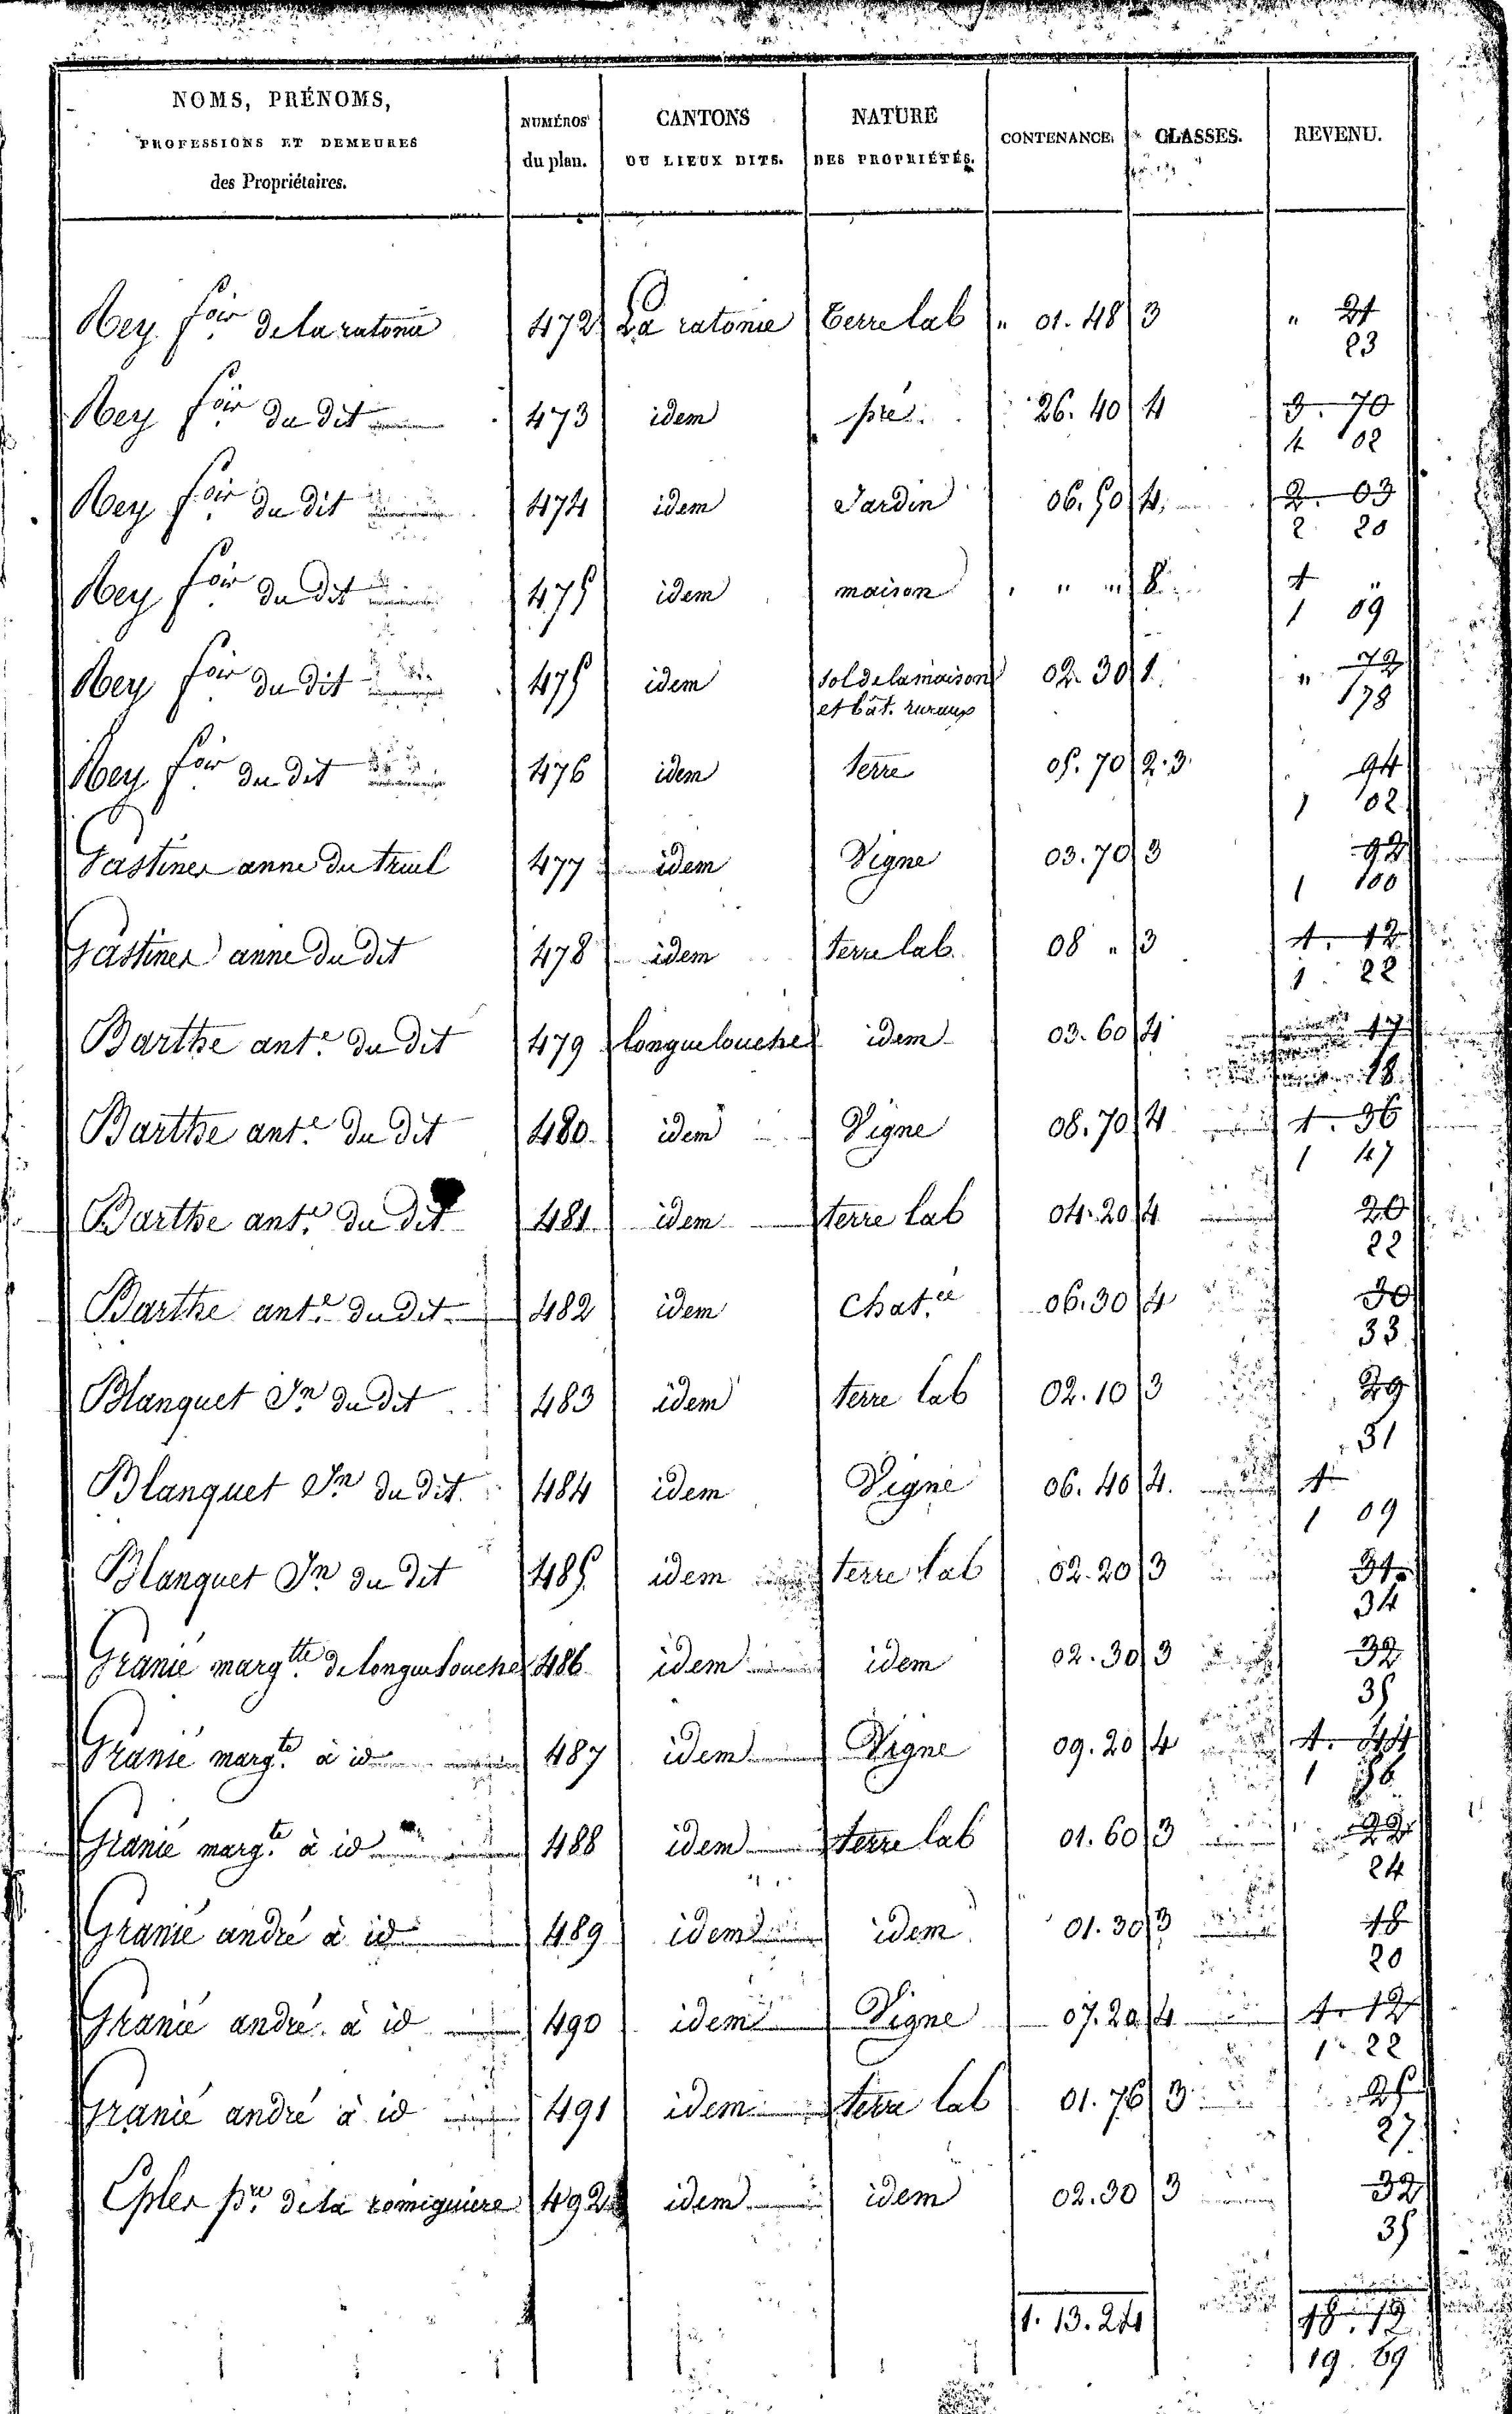 NOMS, PRÉNOMS, PROFESSIONS ET DEMEURES des Propriétaires. | NUMÉROS du plan. | CANTONS OU LIEUX DITS. | NATURE DES PROPRIÉTÉS. | CONTENANCE. | CLASSES. | REVENU.
Rey foix de la ratonie 472 La ratonie terre lab " 01. 48 3 " 21
23
Rey foix du dit 473 idem pré 26. 40 4 3. 70
4 02
Rey foix du dit 474 idem Jardin 06. 50 4 2. 03
2 20
Rey foix du dit 475 idem maison " " " 8 1 "
1 09
Rey foix du dit 475 idem sol de la maison et bât. ruraux 02. 30 1 " 72
78
Rey foix du dit 476 idem terre 05. 70 2. 3. 94
1 02
Gastiner anne du truel 477 idem Vigne 03. 70 3 92
1 00
Gastiner anne du dit 478 idem terre lab. 08 " 3 1. 12
1. 22
Barthe ant.e du dit 479 longuelouche idem 03. 60 4 17
18
Barthe ant.e du dit 480 idem Vigne 08. 70 4 1. 36
1 47
Barthe ant.e du dit 481 idem terre lab 04. 20 4 20
22
Barthe ant.e du dit 482 idem Chat. 06. 30 4 30
33
Blanquet Jn du dit 483 idem terre lab 02. 10 3 29
31
Blanquet Jn du dit 484 idem Vigne 06. 40 4. 1
1 09
Blanquet Jn du dit 485 idem terre lab 02. 20 3 31
34
Granié marg.tte de longuelouche 486 idem idem 02. 30 3 32
35
Granié marg.te à id 487 idem Vigne 09. 20 4 1. 44
1 56
Granié marg.te à id 488 idem terre lab 01. 60 3 22
24
Granié andré à id 489 idem idem 01. 30 3 18
20
Granié andré à id 490 idem Vigne 07. 20 4 1. 12
1. 22
Granié andré à id 491 idem terre lab 01. 76 3 25
27
p.re de la romiguiere 492 idem idem 02. 30 3 32
35
1. 13. 24 18. 12
19. 69